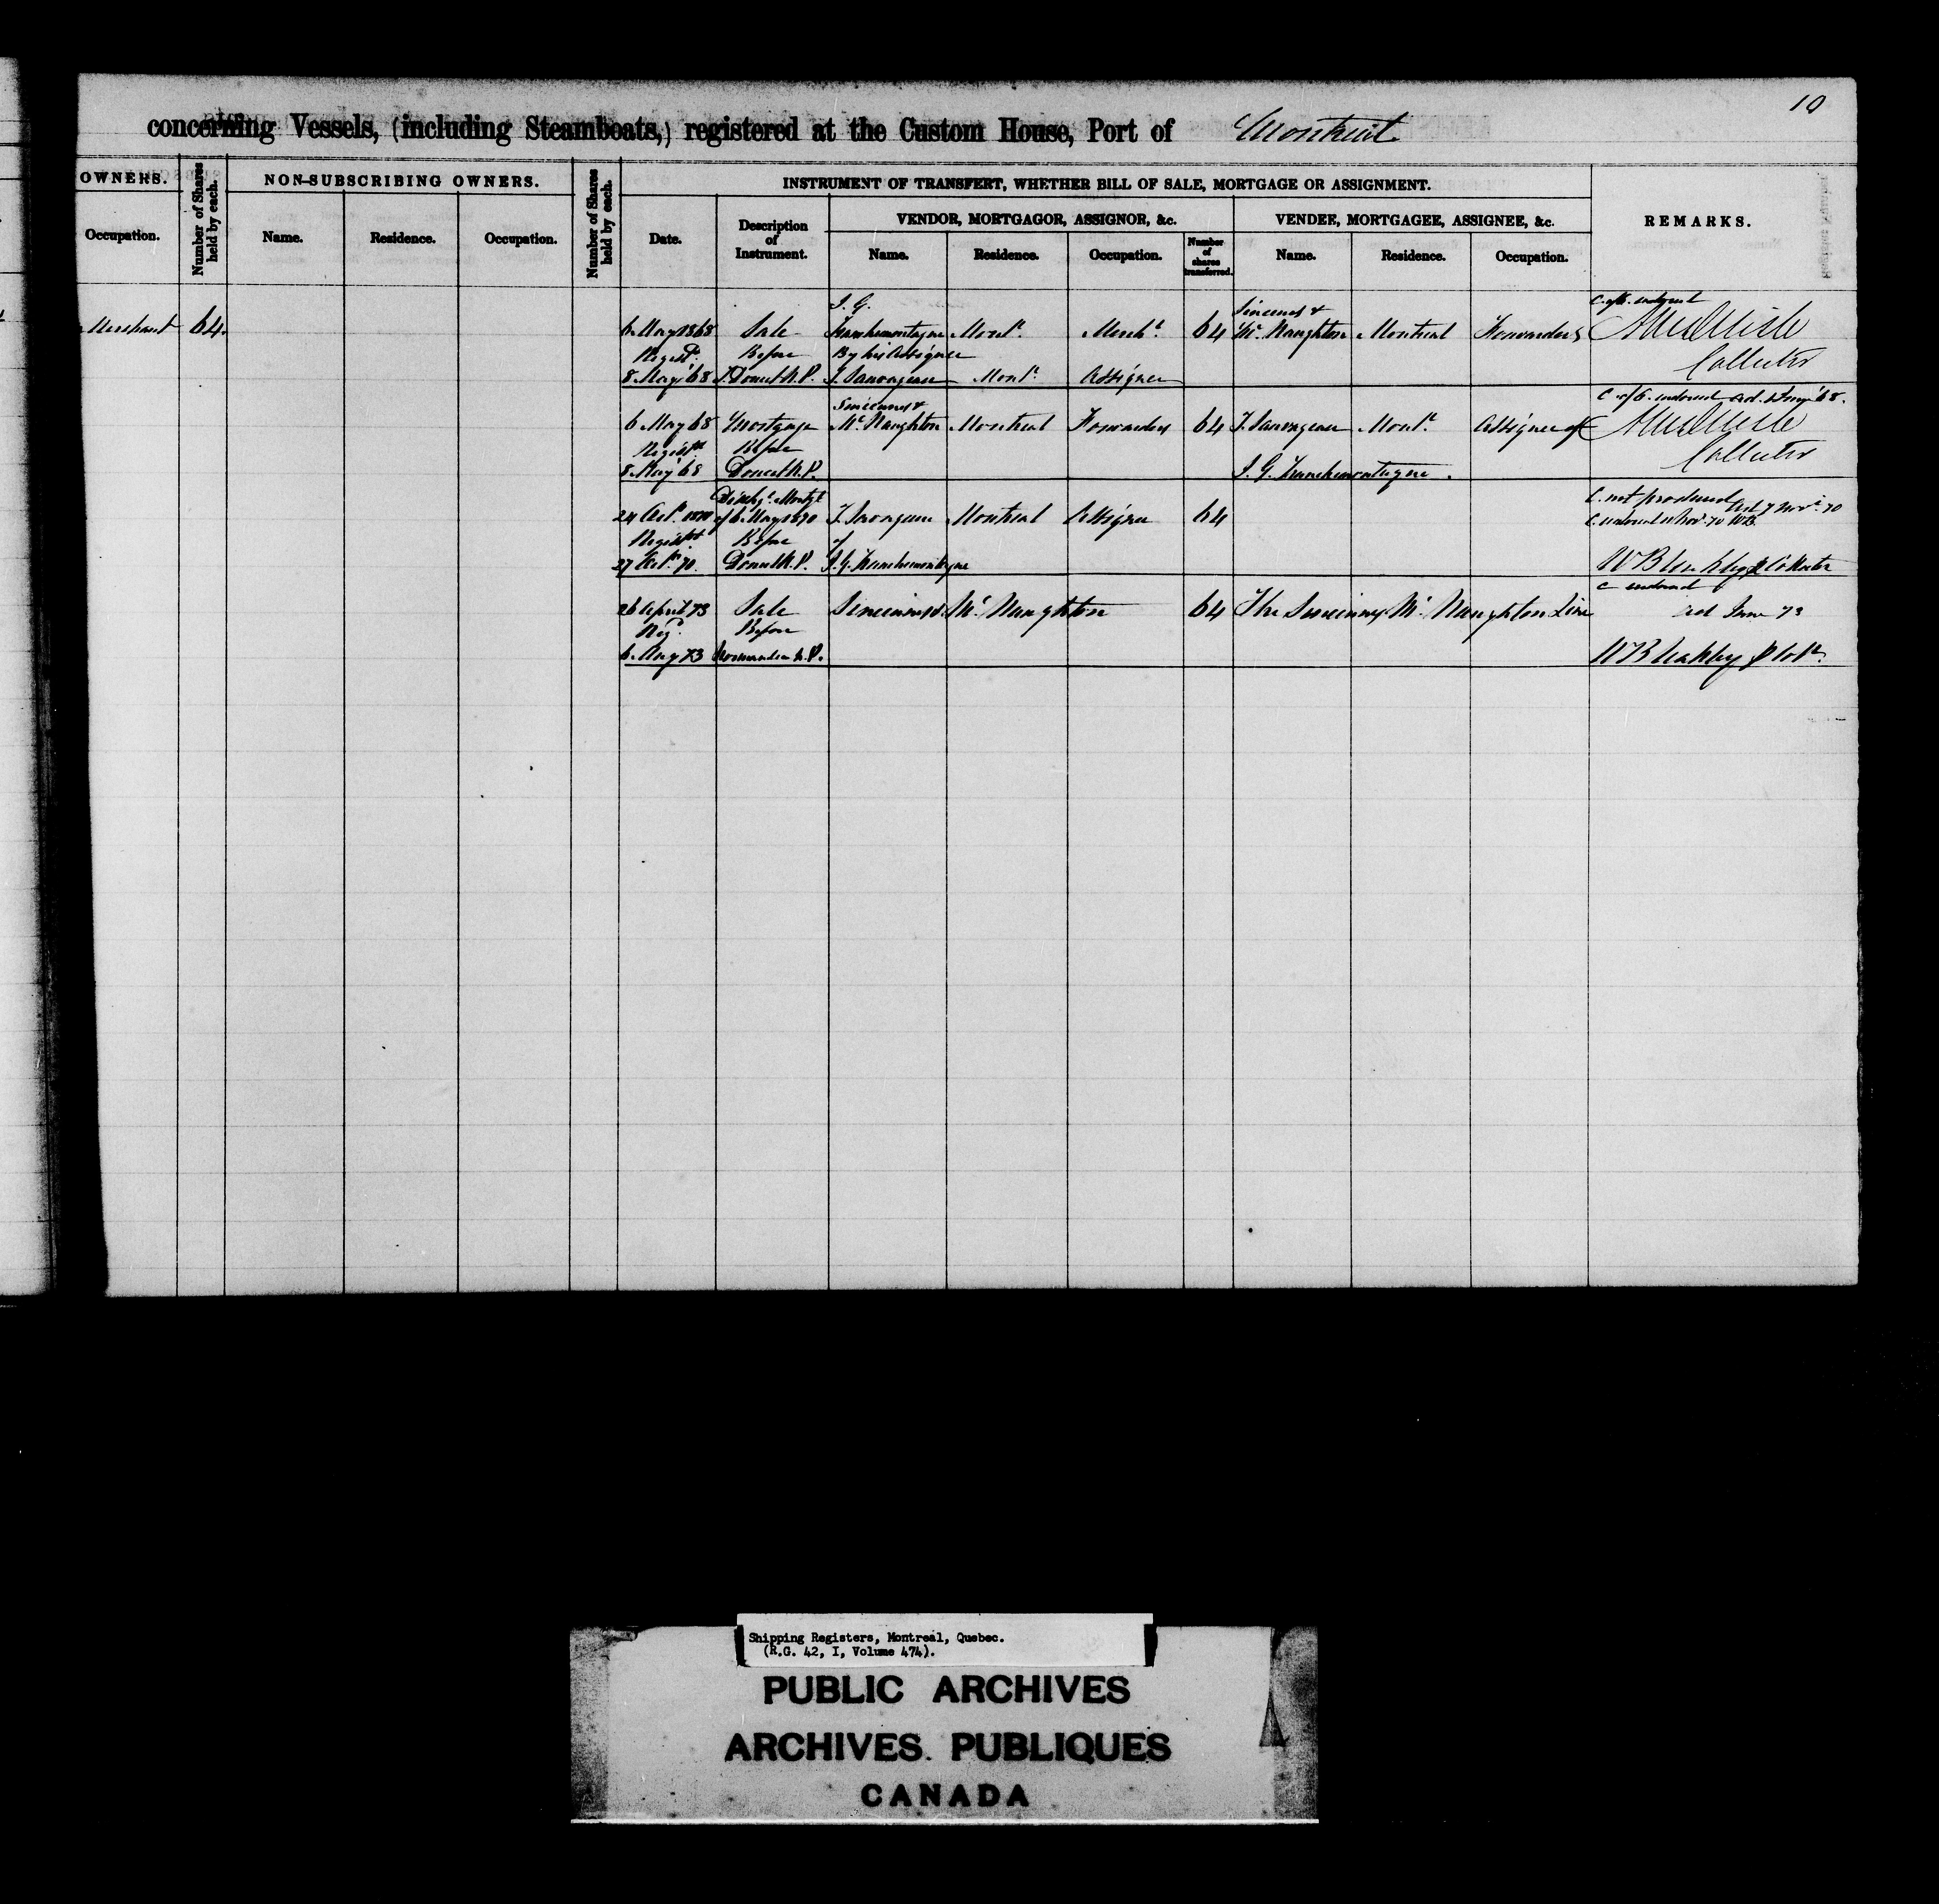 10
concerning Vessels, (including Steamboats,) registered at the Custom House, Port of Montreal
OWNERS.
Occupation.
Number of Shares held by each.
NON-SUBSCRIBING OWNERS.
Name.
Residence.
Occupation.
Number of Shares held by each.
INSTRUMENT OF TRANSFERT, WHETHER BILL OF SALE, MORTGAGE OR ASSIGNMENT.
Date.
Description of Instrument.
VENDOR, MORTGAGOR, ASSIGNOR, &c.
Name.
Residence.
Occupation.
Number of shares transferred.
VENDEE, MORTGAGEE, ASSIGNEE, &c.
Name.
Residence.
Occupation.
REMARKS.
J. G. Sincennes & C. of O. indorsed
Merchant 64. 6 May 1868 Sale Franchemontagne Montl. Mercht. 64 Mc Naughton Montreal Forwarders
Registd. Before By his Assignee Collector
8 May '68 J. Doucet N.P. T. Sauvageau Montl. Assignee
Sincennes & C. of O. indorsed
6 May 68 Mortgage Mc Naughton Montreal Forwarders 64 T. Sauvageau Montl. Assignee of
Registd. Before Collector
8 May '68 Doucet N.P. J. G. Franchemontagne.
Dischge. Mortge. C. not produced
24 Oct. 1870 of 6 May 1870 T. Sauvageau Montreal Assignee 64
Registd. Before of
27 Oct. 70. Doucet N.P. J. G. Franchemontagne
C indorsed
26 April 73 Sale Sincennes & Mc Naughton 64 The Sincennes Mc Naughton Line June 73
Regd. Before
6 Aug 73 N.P.
Shipping Registers, Montreal, Quebec.
(R.G. 42, I, Volume 474).
PUBLIC ARCHIVES
ARCHIVES PUBLIQUES
CANADA